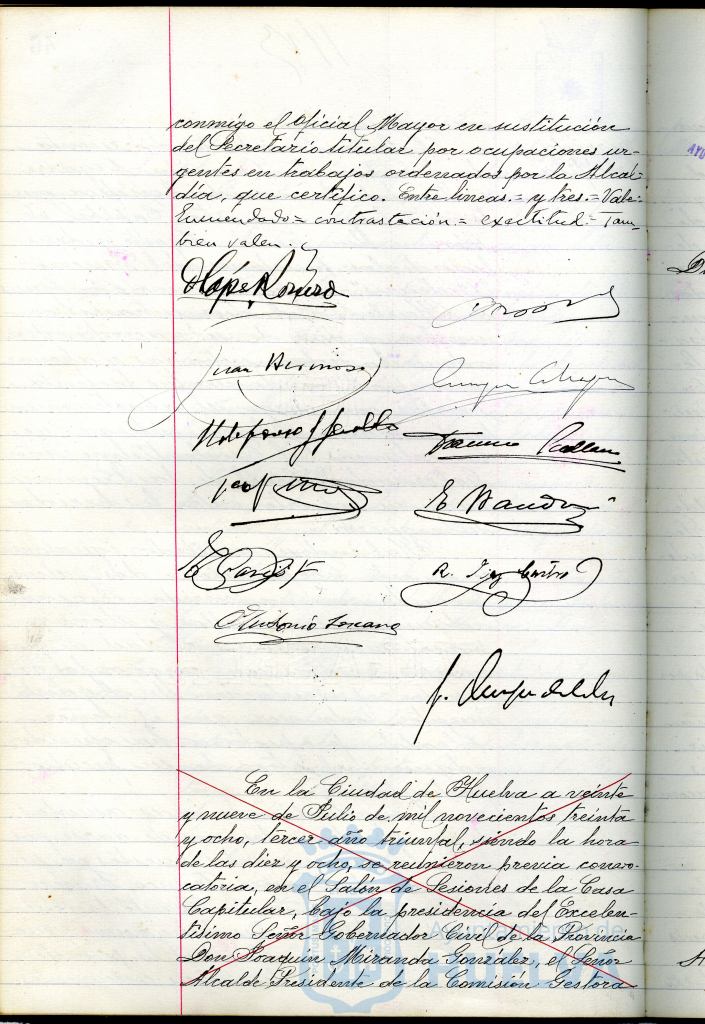 conmigo el Oficial Mayor en sustitución
del Secretario titular por ocupaciones ur-
gentes en trabajos ordenados por la Alcal-
día, que certifico. Entre lineas.= y tres.= Vale.
Enmendado= contrastación.= exactitud.= Tam-
bien valen.
López Romero
Juan Hermoso
Antonio Lozano
En la Ciudad de Huelva a veinte
y nueve de Julio de mil novecientos treinta
y ocho, tercer año triunfal, siendo la hora
de las diez y ocho, se reunieron previa convo-
catoria, en el Salón de Sesiones de la Casa
Capitular, bajo la presidencia del Excelen-
tísimo Señor Gobernador Civil de la Provincia
Don Joaquin Miranda González, el Señor
Alcalde Presidente de la Comisión Gestora
Ayuntamiento de
HUELVA